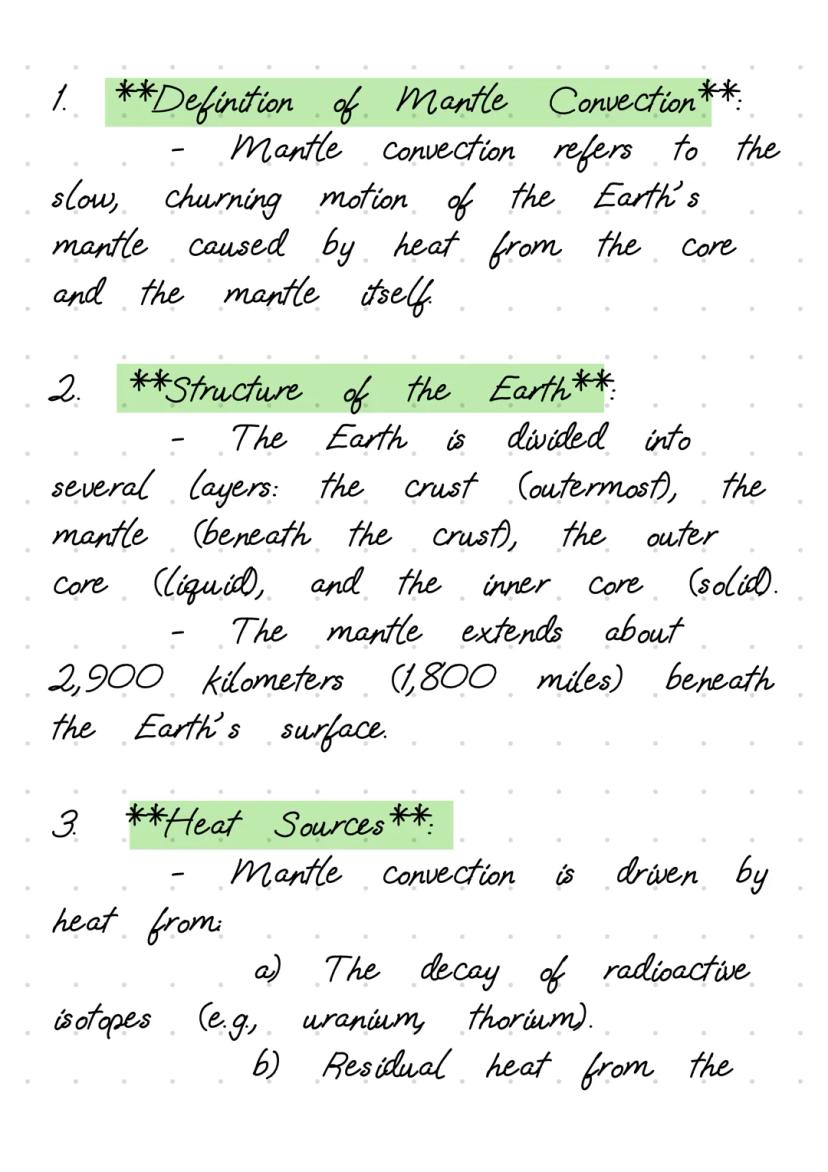 1. **Definition of Mantle Convection**:
- Mantle convection refers to the
slow, churning motion of the Earth's
mantle caused by heat from the core
and the mantle itself.
2. **Structure of the Earth**:
- The Earth is divided into
several layers: the crust (outermost), the
mantle (beneath the crust), the outer
core (liquid), and the inner core (solid).
- The mantle extends about
2,900 kilometers (1,800 miles) beneath
the Earth's surface.
3. **Heat Sources**:
- Mantle convection is driven by
heat from:
a) The decay of radioactive
isotopes (e.g., uranium, thorium).
b) Residual heat from the